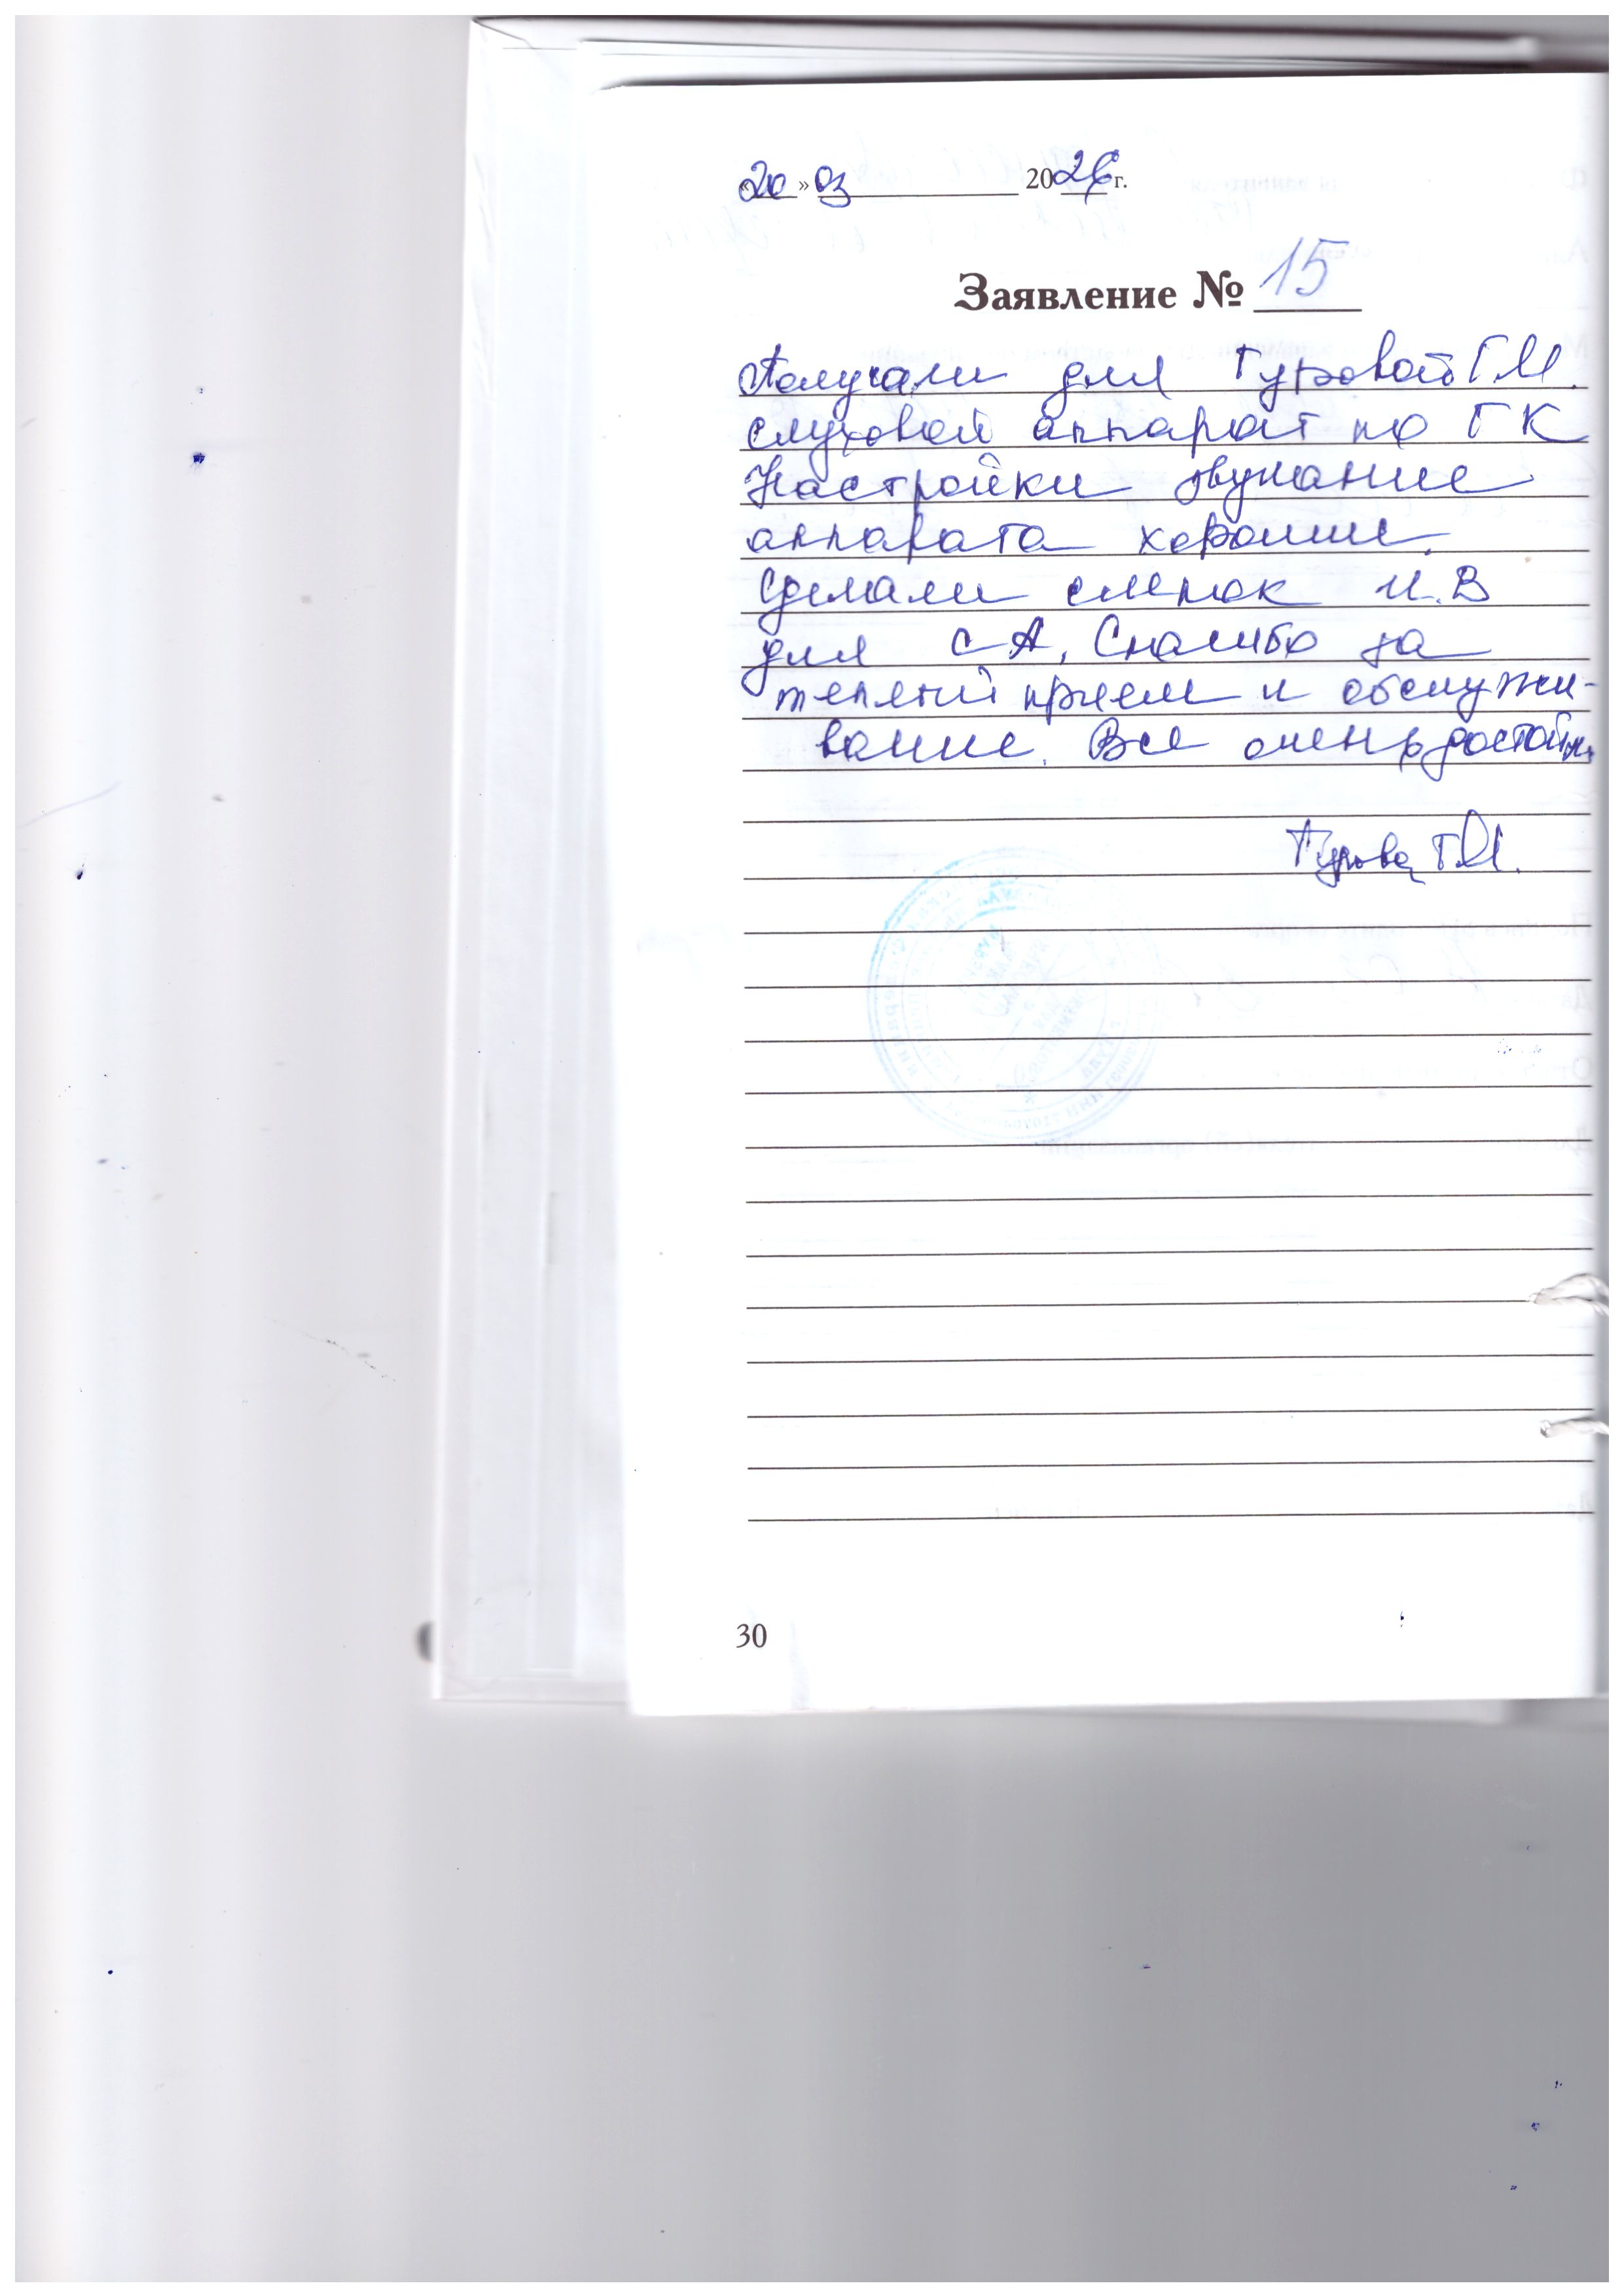 «20» 03 2026 г.
Заявление № 15
Получали для Туровой Г.М.
слуховой аппарат по ГК
Настройки звучание
аппарата хорошие.
Сделали слепок И.В
для СА, Спасибо за
теплый прием и обслужи-
вание. Все очень достойно
Турова Г.М.
30